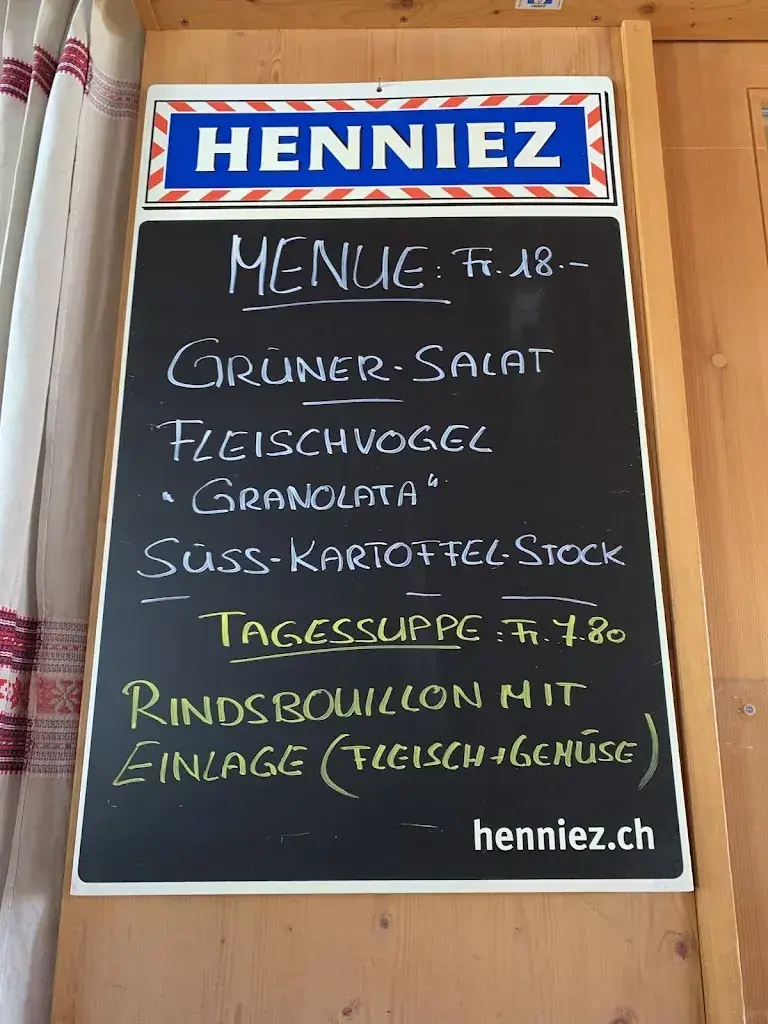 HENNIEZ
MENUE: Fr. 18.-
GRÜNER-SALAT
FLEISCHVOGEL
"GRANOLATA"
SÜSS-KARTOFFEL-STOCK
TAGESSUPPE: Fr. 7.80
RINDSBOUILLON MIT
EINLAGE (FLEISCH+GEMÜSE)
henniez.ch